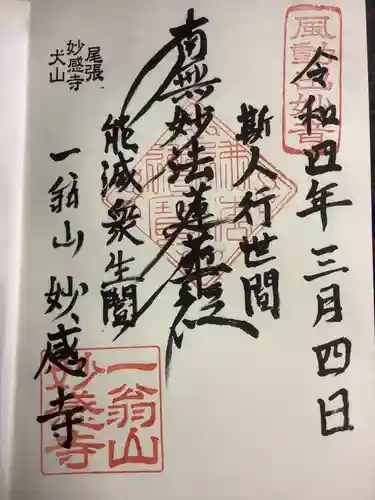 令和四年三月四日
斯人行世間
南無妙法蓮華経
能滅衆生闇
一翁山 妙感寺
尾張
妙感寺
犬山
一翁山
妙感寺